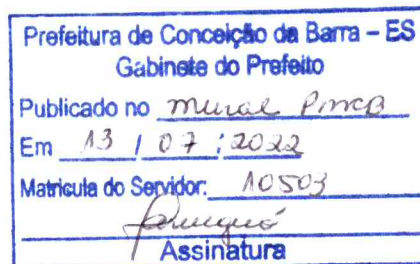 Prefeitura de Conceição da Barra – ES
Gabinete do Prefeito
Publicado no mural PMCB
Em 13 / 07 / 2022
Matricula do Servidor: 10503
Assinatura